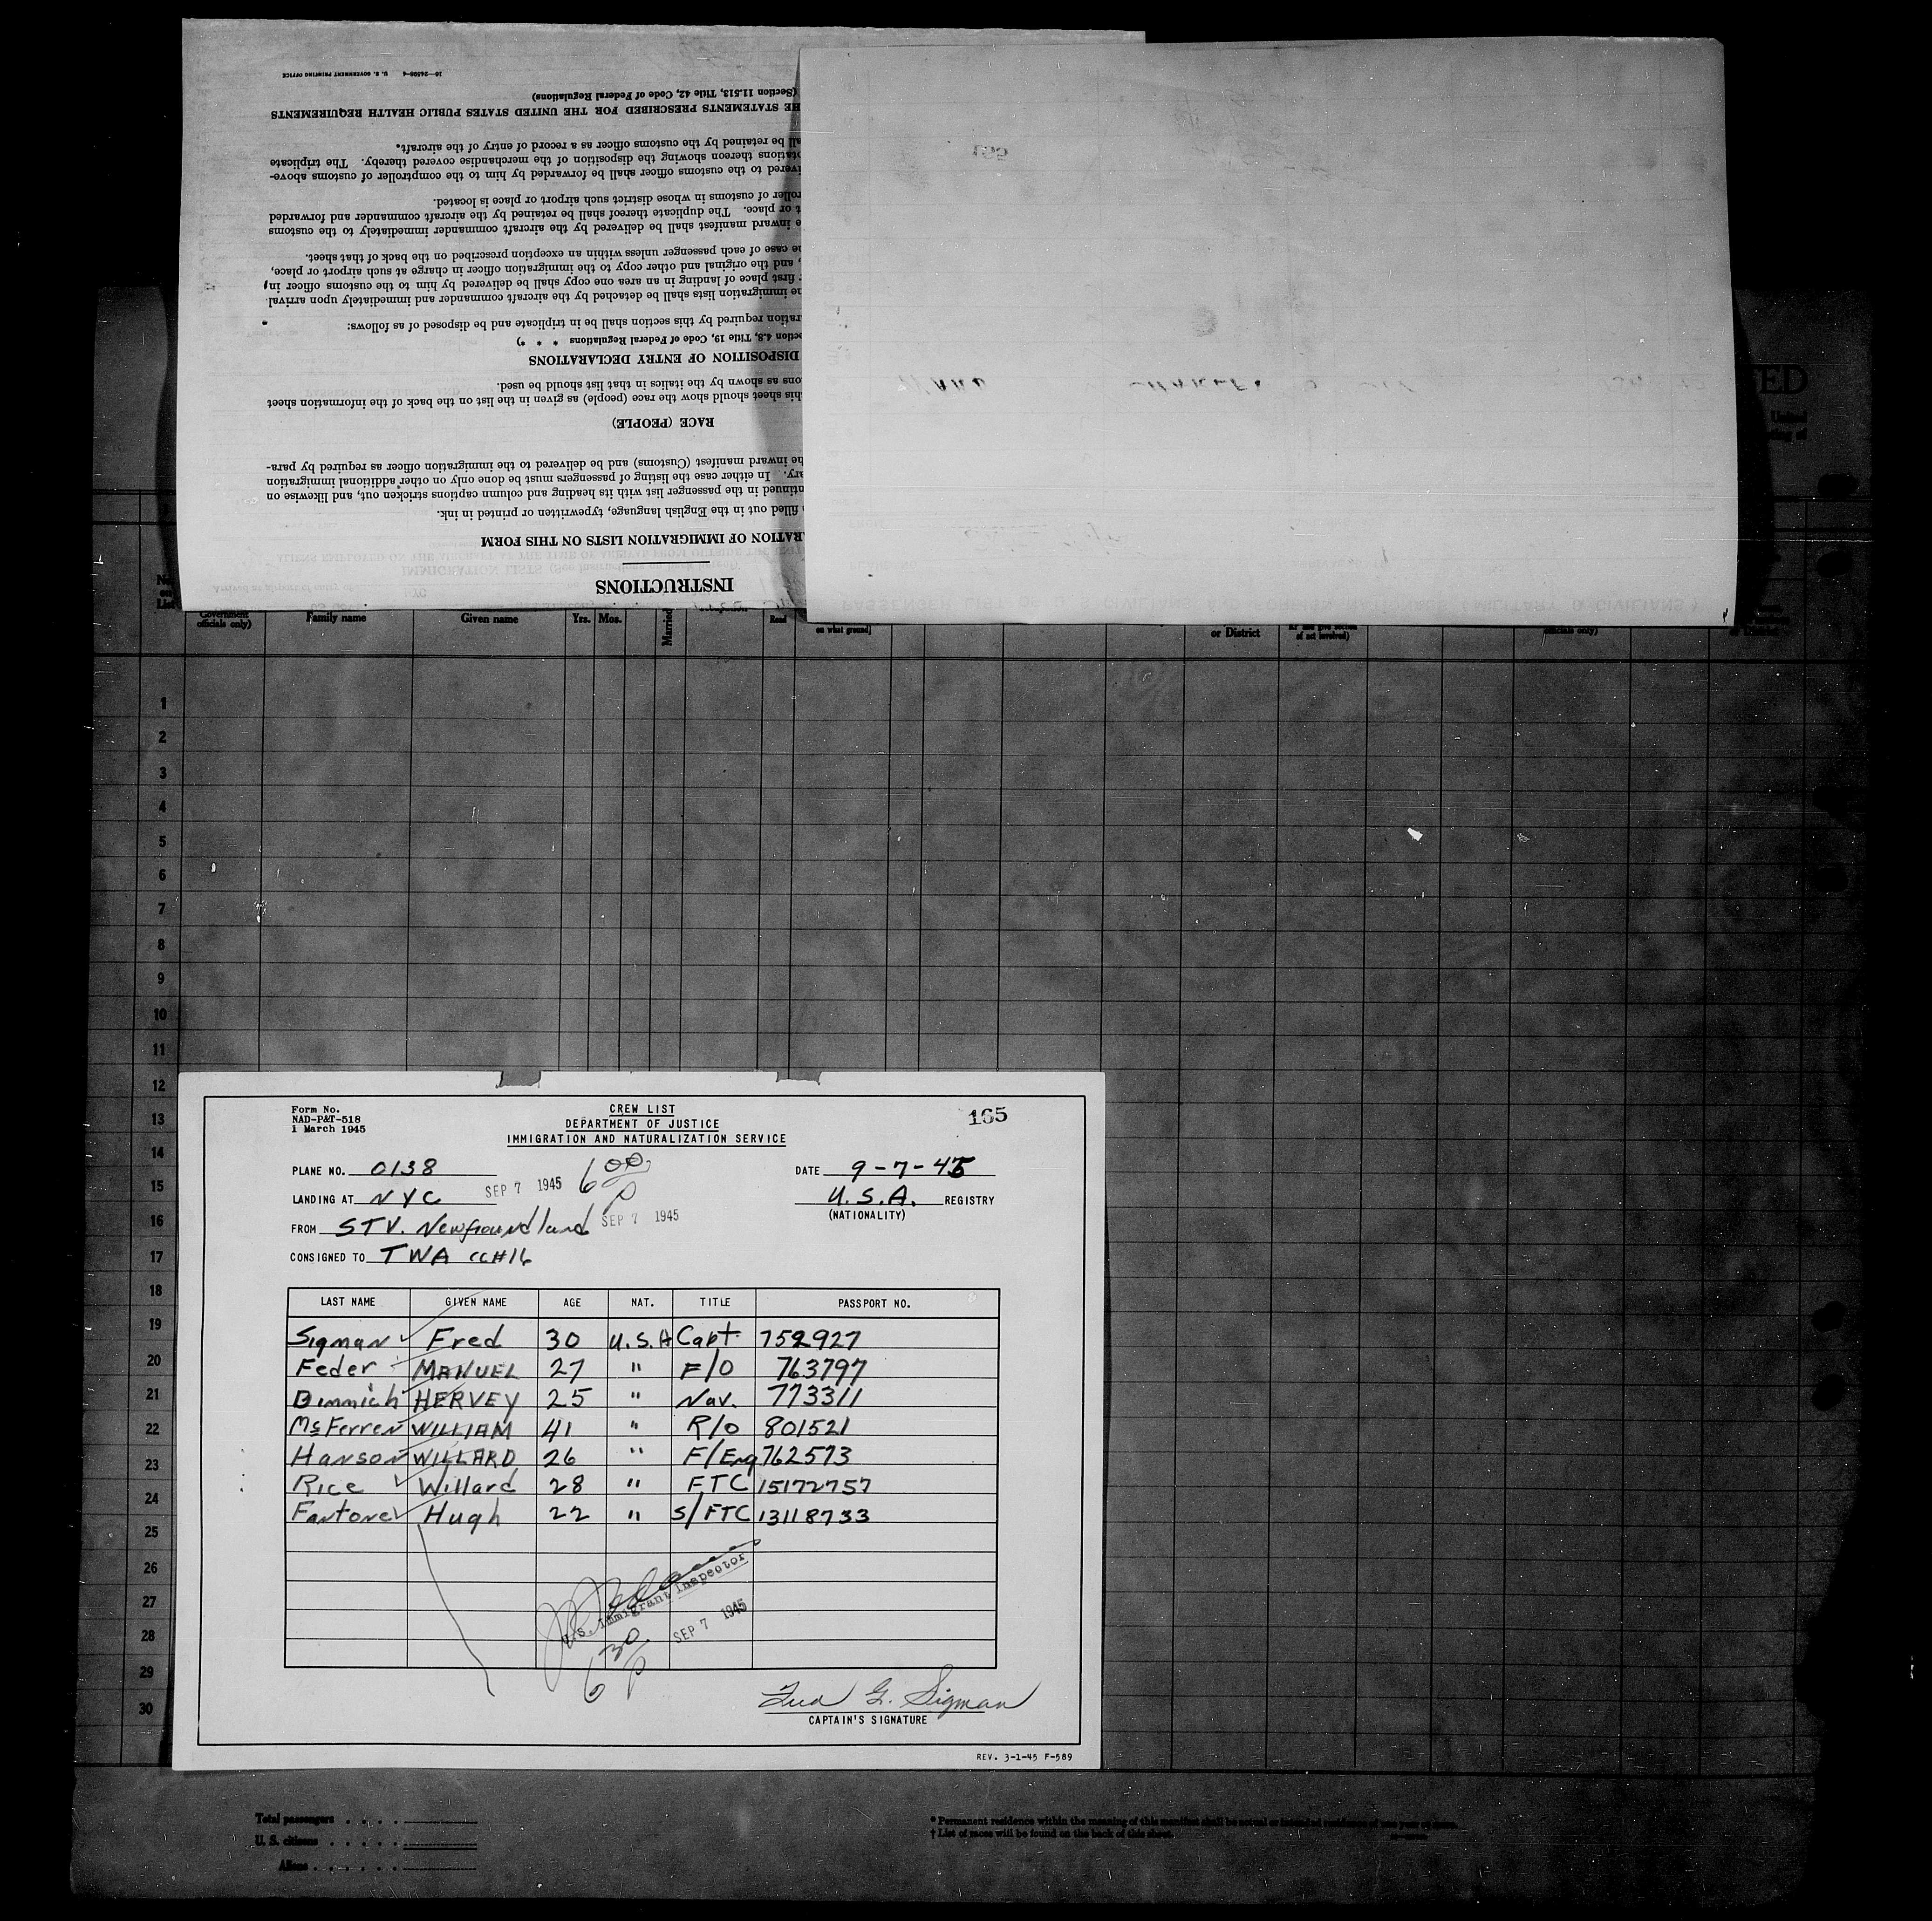 16—24596-4 U. S. GOVERNMENT PRINTING OFFICE
(Section 11.513, Title 42, Code of Federal Regulations)
STATEMENTS PRESCRIBED FOR THE UNITED STATES PUBLIC HEALTH REQUIREMENTS
be retained by the customs officer as a record of entry of the aircraft.
thereon showing the disposition of the merchandise covered thereby. The triplicate
to the customs officer shall be forwarded by him to the comptroller of customs above-
of customs in whose district such airport or place is located.
or place. The duplicate thereof shall be retained by the aircraft commander and forwarded
inward manifest shall be delivered by the aircraft commander immediately to the customs
case of each passenger unless within an exception prescribed on the back of that sheet.
, and the original and other copy to the immigration officer in charge at such airport or place,
first place of landing in an area one copy shall be delivered by him to the customs officer in
immigration lists shall be detached by the aircraft commander and immediately upon arrival
required by this section shall be in triplicate and be disposed of as follows:
4.8, Title 19, Code of Federal Regulations * * *)
DISPOSITION OF ENTRY DECLARATIONS
as shown by the italics in that list should be used.
this sheet should show the race (people) as given in the list on the back of the information sheet
RACE (PEOPLE)
inward manifest (Customs) and be delivered to the immigration officer as required by para-
In either case the listing of passengers must be done only on other additional immigration
in the passenger list with its heading and column captions stricken out, and likewise on
filled out in the English language, typewritten or printed in ink.
OF IMMIGRATION LISTS ON THIS FORM
INSTRUCTIONS
Government officials only) Family name Given name Yrs. Mos. Married Read on what ground] or District of act involved) officials only)
1
2
3
4
5
6
7
8
9
10
11
12
13
14
15
16
17
18
19
20
21
22
23
24
25
26
27
28
29
30
Form No.
NAD-P&T-518
1 March 1945
CREW LIST
DEPARTMENT OF JUSTICE
IMMIGRATION AND NATURALIZATION SERVICE
165
PLANE NO. 0138 DATE 9-7-45
LANDING AT NYC SEP 7 1945 6 00 P U.S.A. REGISTRY
(NATIONALITY)
FROM STV. Newfoundland SEP 7 1945
CONSIGNED TO TWA CC#16
LAST NAME GIVEN NAME AGE NAT. TITLE PASSPORT NO.
Sigman Fred 30 U.S.A Capt. 752927
Feder MANUEL 27 " F/O 763797
Dimmich HERVEY 25 " Nav. 773311
McFerren WILLIAM 41 " R/O 801521
Hanson WILLARD 26 " F/Eng 762573
Rice Willard 28 " FTC 15172757
Fantone Hugh 22 " S/FTC 13118733
U.S. Immigrant Inspector
SEP 7 1945
6 30 P
Fred G. Sigman
CAPTAIN'S SIGNATURE
REV. 3-1-45 F-589
Total passengers
U. S. citizens
Aliens
* Permanent residence within the meaning of this manifest shall be actual or intended residence of one year or more.
† List of races will be found on the back of this sheet.